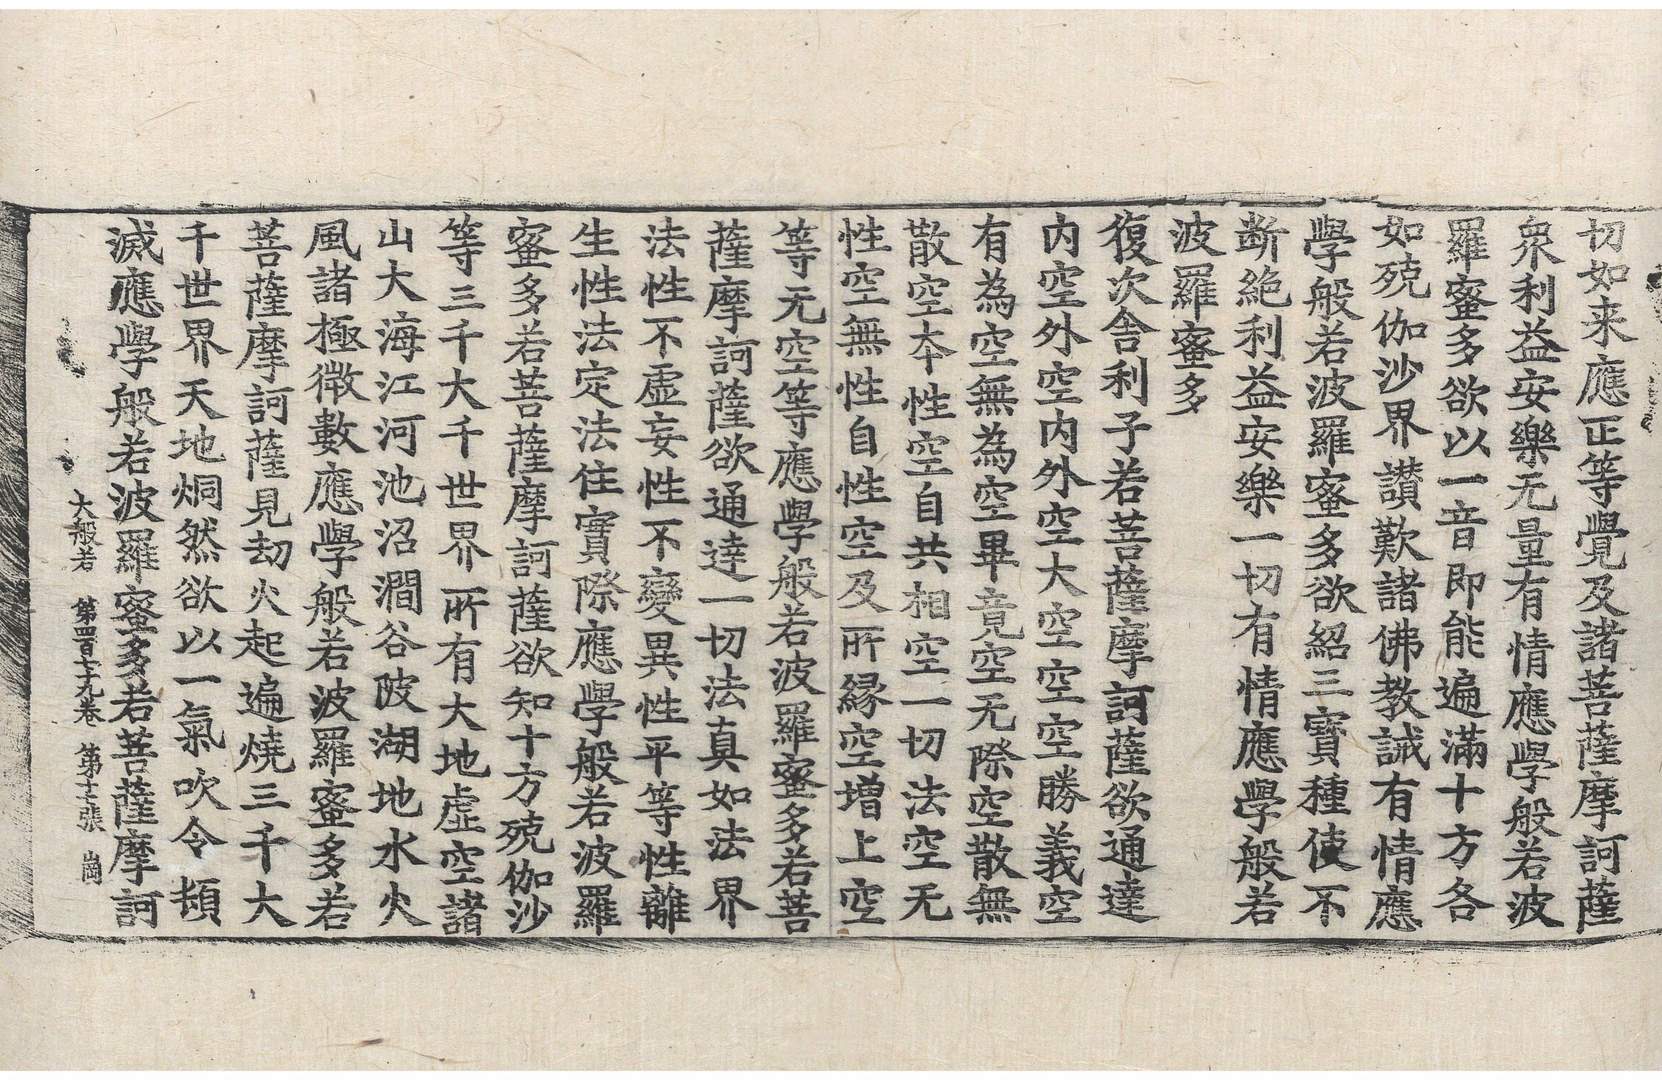 切如来應正等覺及諸菩薩摩訶薩
衆利益安樂无量有情應學般若波
羅蜜多欲以一音即能遍滿十方各
如殑伽沙界讃歎諸佛教誡有情應
學般若波羅蜜多欲紹三寶種使不
断絶利益安樂一切有情應學般若
波羅蜜多
復次舎利子若菩薩摩訶薩欲通達
内空外空内外空大空空空勝義空
有為空無為空畢竟空无際空散無
散空本性空自共相空一切法空无
性空無性自性空及所縁空增上空
等无空等應學般若波羅蜜多若菩
薩摩訶薩欲通達一切法真如法界
法性不虚妄性不變異性平等性離
生性法定法住實際應學般若波羅
蜜多若菩薩摩訶薩欲知十方殑伽沙
等三千大千世界所有大地虚空諸
山大海江河池沼澗谷陂湖地水火
風諸極微數應學般若波羅蜜多若
菩薩摩訶薩見劫火起遍燒三千大
千世界天地烔然欲以一氣吹令頓
滅應學般若波羅蜜多若菩薩摩訶
大般若 第四百七十九卷 第十張 崗